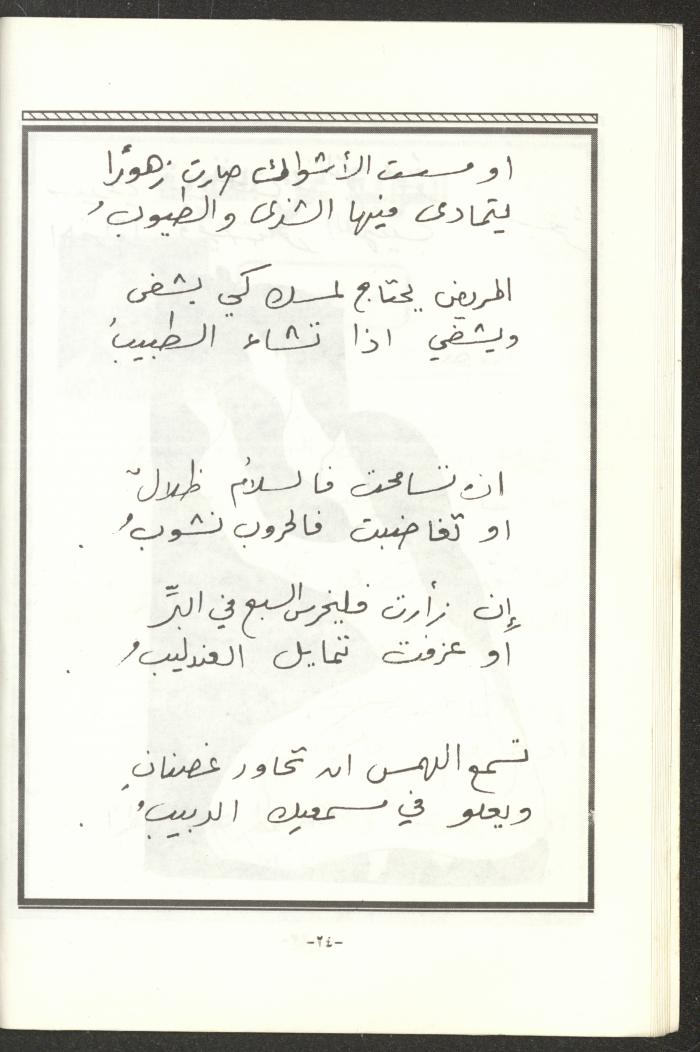 او مست الأشواك صارت زهورًا
يتمادى فيها الشذى والطيوبُ
المريض يحتاج لمسك كي يشفى
ويشفي اذا تشاء الطبيبُ
ان تسامحت فالسلامُ ظلالٌ
او تغاضبت فالحروب نشوبُ .
إِن زأرت فليخرس السبع في البرِّ
أو عزفت تمايل العندليبُ .
تسمع الهمس ان تحاور غصنانِ
ويعلو في مسمعيك الدبيبُ .
-٢٤-